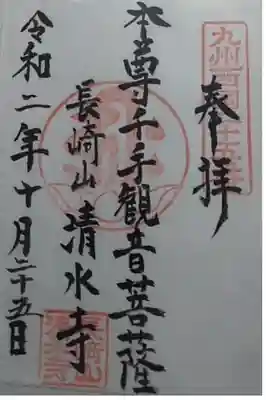 奉拝
本尊千手観音菩薩
長崎山清水寺
令和二年十月二十五日